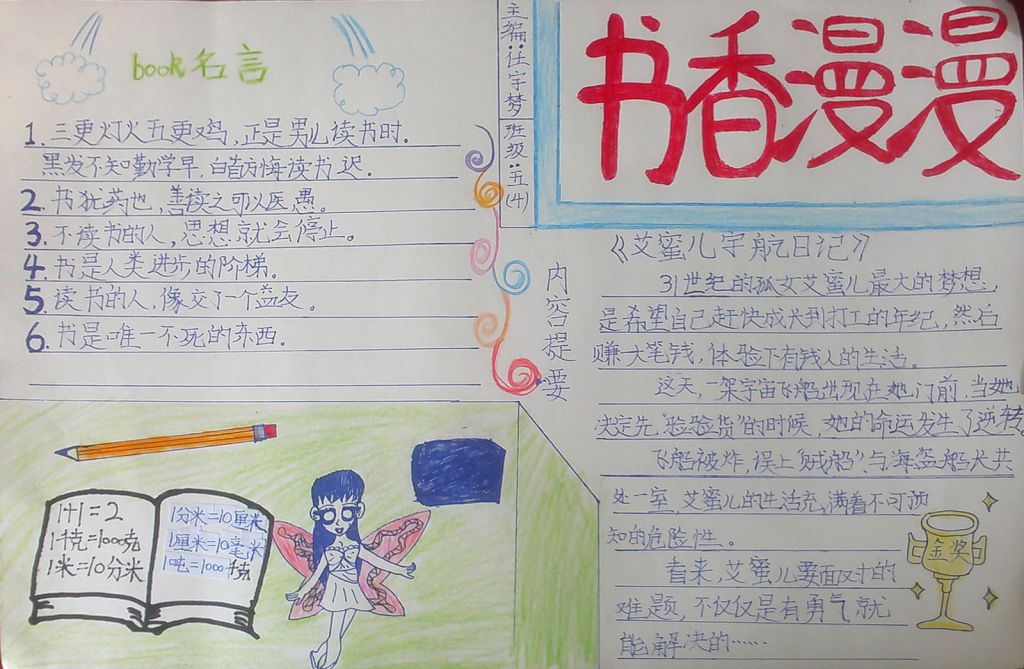 主编：任宇梦
班级：五(4)
书香漫漫
book名言
1. 三更灯火五更鸡，正是男儿读书时.
黑发不知勤学早，白首方悔读书迟.
2. 书犹药也，善读之可以医愚。
3. 不读书的人，思想就会停止。
4. 书是人类进步的阶梯。
5. 读书的人，像交了一个益友。
6. 书是唯一不死的东西.
内容提要
《艾蜜儿宇航日记》
31世纪的孤女艾蜜儿最大的梦想，
是希望自己赶快成长到打工的年纪，然后
赚大笔钱，体验下有钱人的生活。
这天，一架宇宙飞船出现在她门前，当她
决定先"验验货"的时候，她的命运发生了逆转
飞船被炸，误上"贼船"，与海盗船犬共
处一室，艾蜜儿的生活充满着不可预
知的危险性。
看来，艾蜜儿要面对的
难题，不仅仅是有勇气就
能解决的……
金奖
1+1=2
1千克=1000克
1米=10分米
1分米=10厘米
1厘米=10毫米
1吨=1000千克